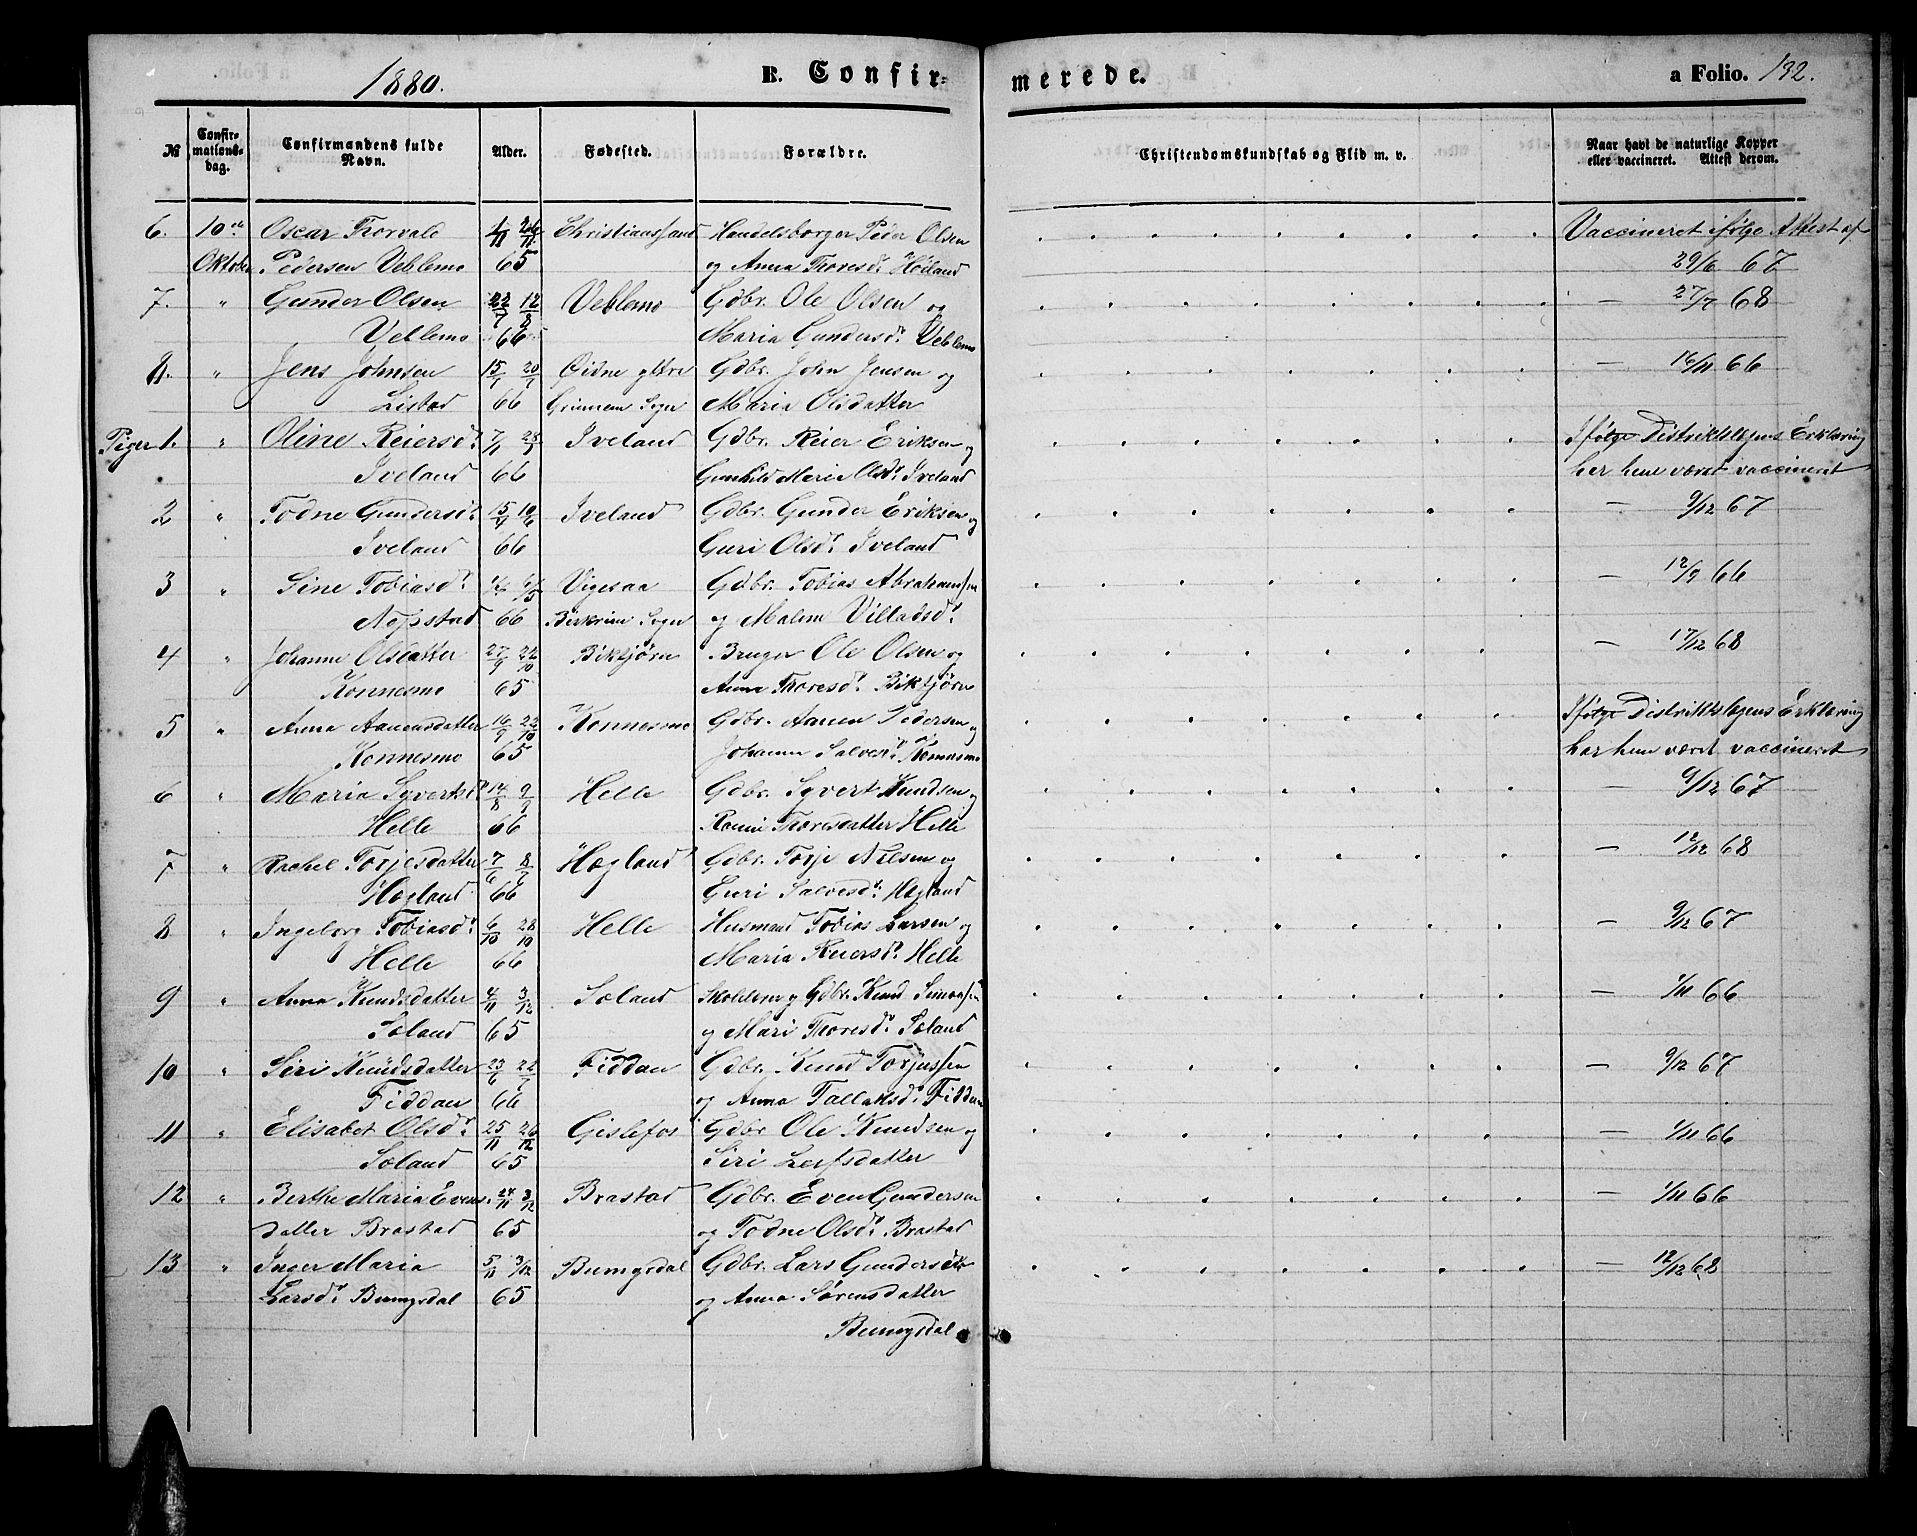 1880.
B. Confirmerede.
a Folio. 132.
№ Confirmationsdag. Confirmandens fulde Navn. Alder. Fødested. Forældre. Christendomskundskab og Flid m. v. Naar havt de naturlige Kopper eller vaccineret. Attest derom.
6. 10de Oscar Torvald Christianssand Handelsborger Peder Olsen Vaccineret ifølge Attest af
Oktober Pedersen Veblemo 65 og Anna Thoresd. Høiland 29/6 67
7. " Gunder Olsen 22/7 12/8 Veblemo Gdbr. Ole Olsen og — 27/7 68
Veblemo 66 Maria Gundersd. Veblemo
8. " Jens Johnsen 15/1 20/1 Øidne yttre Gdbr. John Jensen og — 16/11 66
Listad 66 Grinnem Sogn Maria Olsdatter
Piger 1. " Oline Reiersd. Iveland Gdbr. Reier Eriksen og Ifølge Distriktslægens Erklæring
Iveland 66 Gunhild Maria Olsd. Iveland har hun været vaccineret
2 " Todne Gundersd. Iveland Gdbr. Gunder Eriksen og — 9/12 67
Iveland 66 Guri Olsd. Iveland
3 " Sine Tobiasd. Vigesaa Gdbr. Tobias Abrahamsen — 12/9 66
66 Birkrim Sogn og Malene Villadsd.
4 " Johanne Olsdatter 27/9 22/10 Biktjørn Bruger Ole Olsen og — 17/12 68
Konnesmo 65 Anna Thoresd. Biktjørn
5 " Anna Aanensdatter 16/9 22/10 Konnesmo Gdbr. Aanen Pedersen og Ifølge Distriktslægens Erklæring
Konnesmo 65 Johanne Salvesd. Konnesmo har hun været vaccineret
6 " Maria Syvertsd. 14/8 9/9 Helle Gdbr. Syvert Knudsen og — 9/12 67
Helle 66 Thoresdatter Helle
7 " Rachel Torjesdatter 7/6 8/7 Hægland Gdbr. Torje Nilsen og — 12/12 68
Hægland 66 Guri Salvesd. Hægland
8 " Ingeborg Tobiasd. 6/10 28/10 Helle Husmand Tobias Larsen og — 9/12 67
Helle 66 Maria Reiersd. Helle
9 " Anna Knudsdatter 4/11 3/12 Søland Gdbr. Knud Simonsen — 1/11 66
Søland 65 og Mari Thoresd. Søland
10 " Siri Knudsdatter 23/6 22/7 Fiddan Gdbr. Knud Torjussen — 9/12 67
Fiddan 66 og Anna Tallaksd. Fiddan
11 " Elisabet Olsd. 25/11 26/12 Gislefos Gdbr. Ole Knudsen og — 1/11 66
Søland 65 Siri Leifsdatter
12 " Berthe Maria Evens- 24/11 3/12 Brastad Gdbr. Even Gundersen — 1/11 66
datter Brastad 65 og Todne Olsd. Brastad
13 " Inger Maria 5/11 3/12 Bumgsdal Gdbr. Lars Gundersen — 12/12 68
Larsd. Bumgsdal 65 og Anna Sørensdatter
Bumgsdal